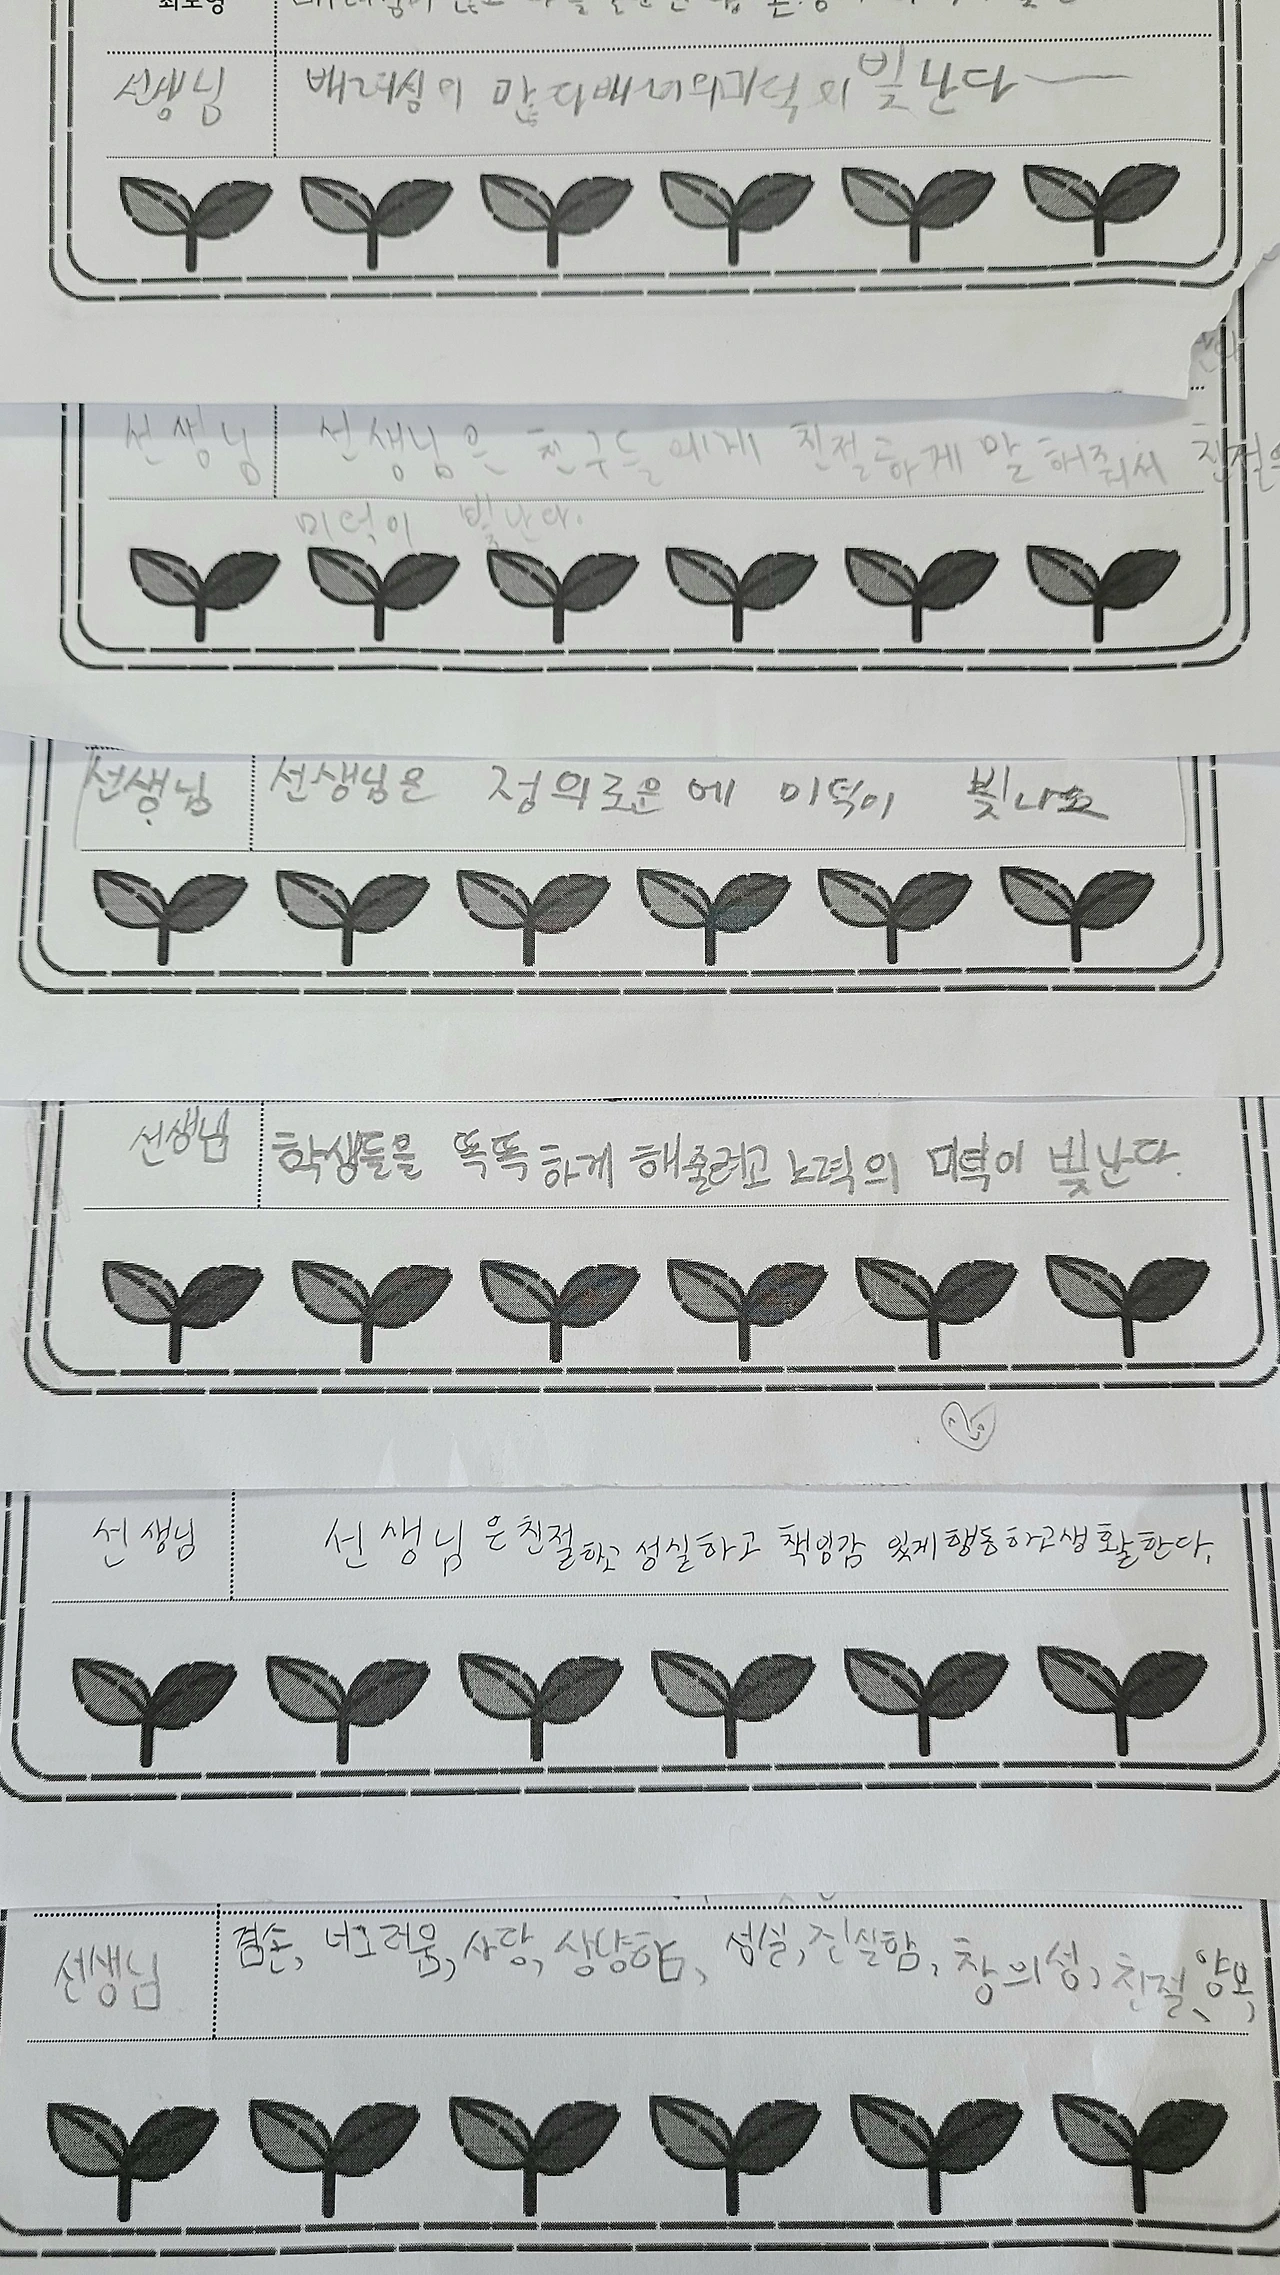 선생님 배려심이 많다 배려의 미덕이 빛난다
선생님 선생님은 친구들에게 친절하게 말해줘서 친절의
미덕이 빛난다.
선생님 선생님은 정의로운에 미덕이 빛나요
선생님 학생들을 똑똑하게 해줄려고 노력의 미덕이 빛난다.
선생님 선생님은 친절하고 성실하고 책임감 있게 행동하고 생활한다.
선생님 겸손, 너그러움, 사랑, 상냥함, 성실, 진실함, 창의성, 친절, 양보,